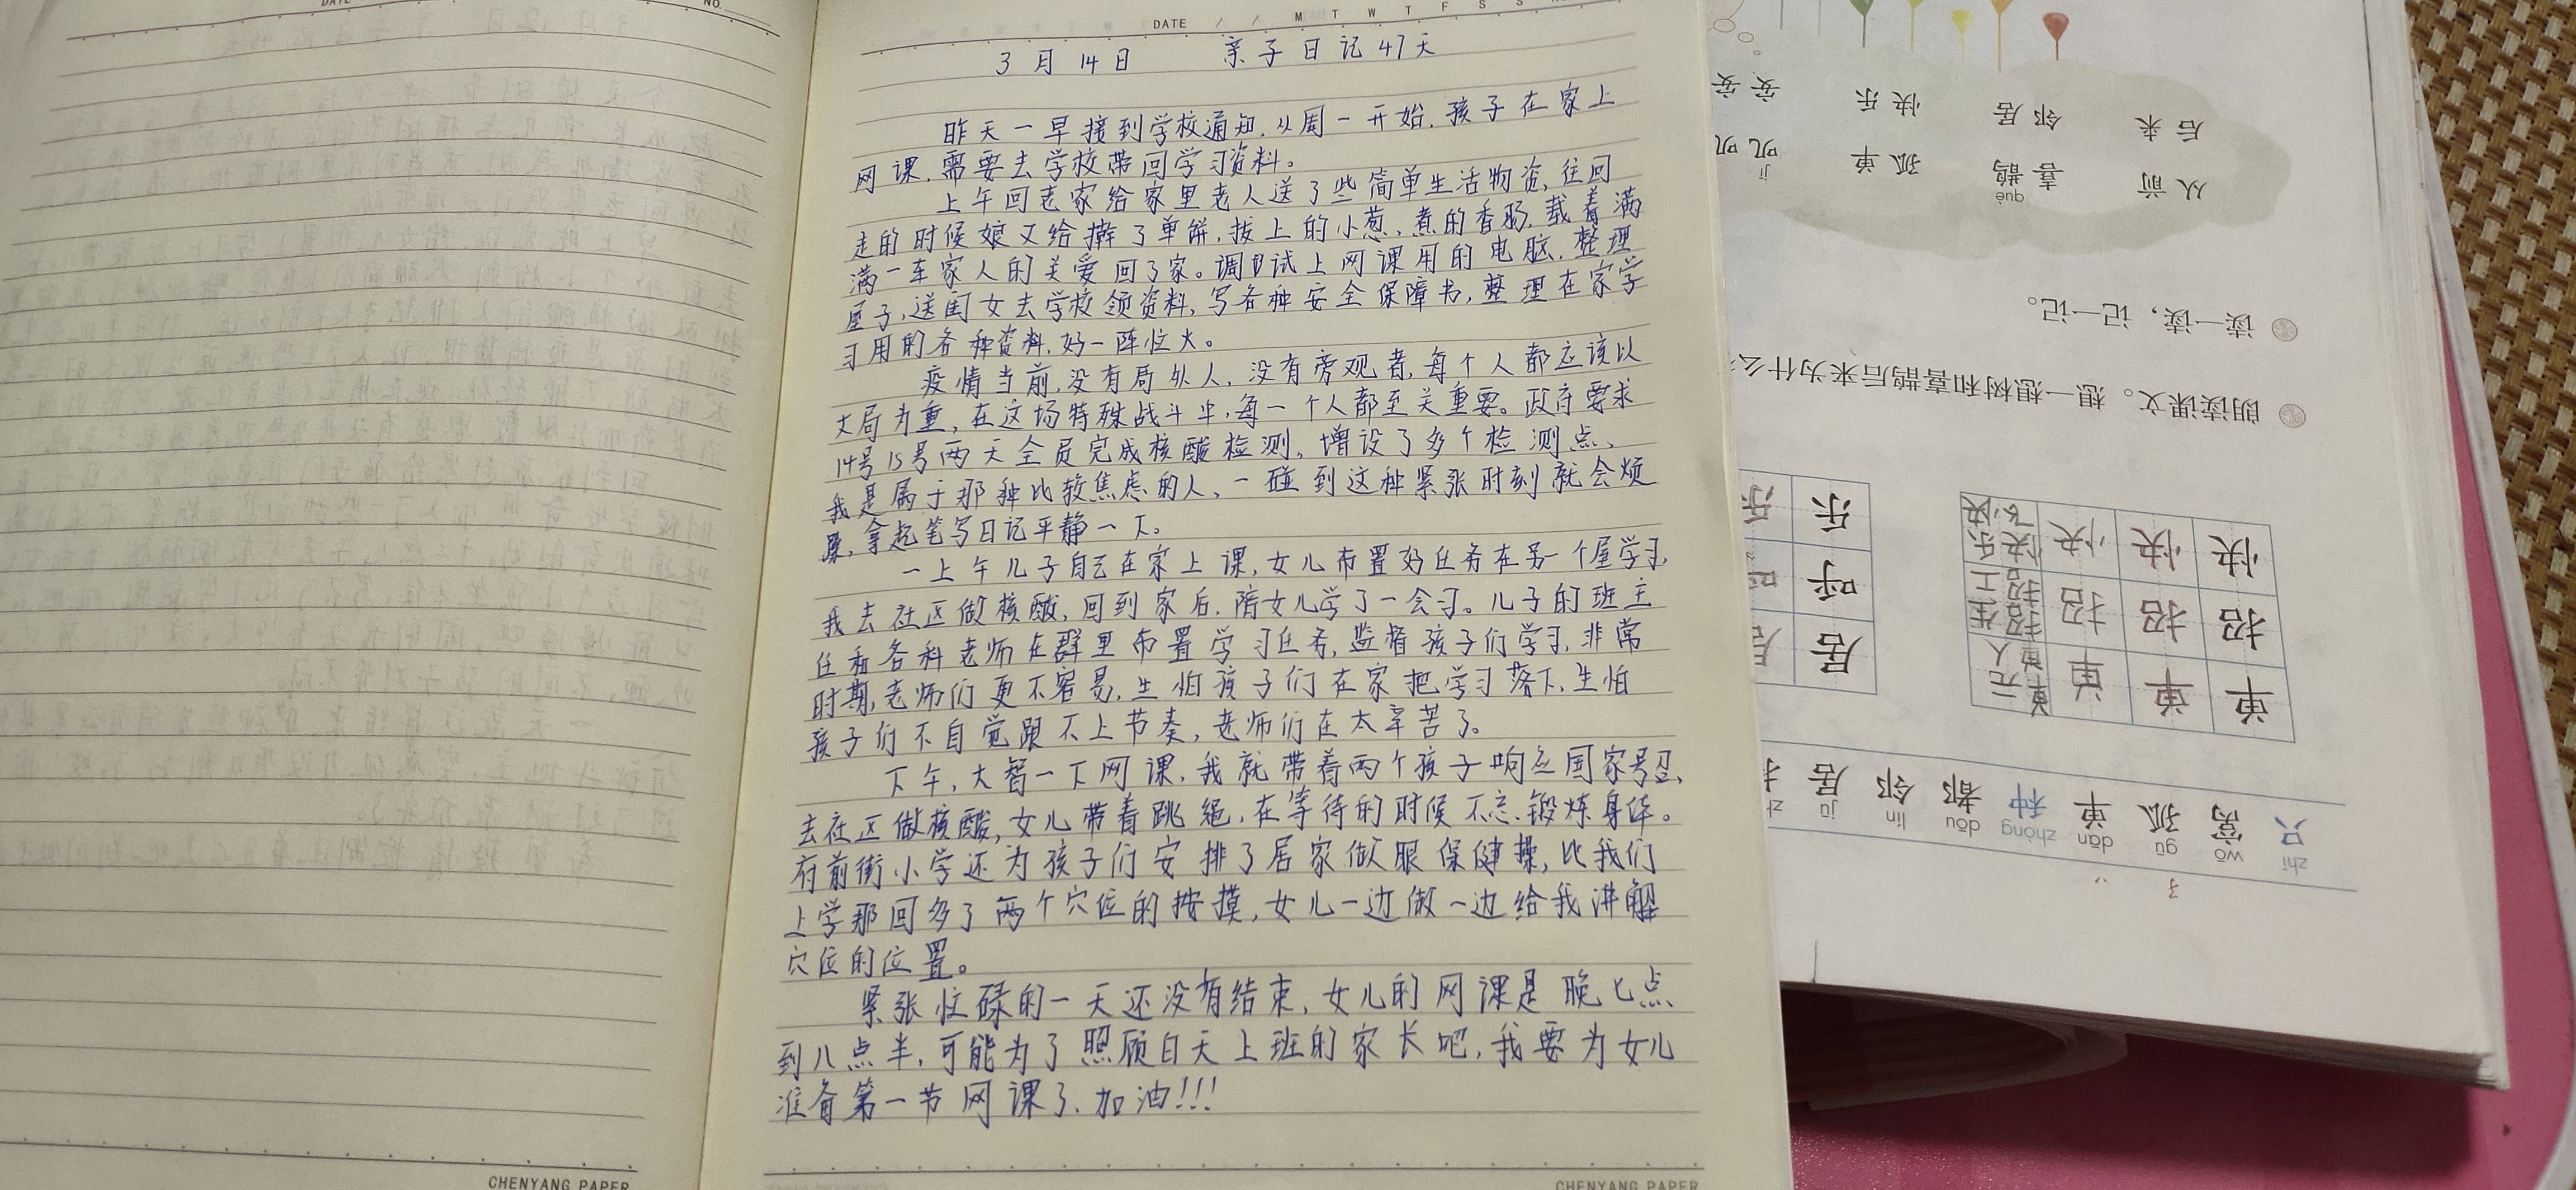 DATE
NO.
CHENYANG PAPER
DATE / / M T W T F S S
3月14日 亲子日记47天
昨天一早接到学校通知,从周一开始,孩子在家上
网课,需要去学校带回学习资料。
上午回老家给家里老人送了些简单生活物资,往回
走的时候娘又给擀了单饼,拔上的小葱,煮的香肠,载着满
满一车家人的关爱回了家。调试上网课用的电脑,整理
屋子,送闺女去学校领资料,写各种安全保障书,整理在家学
习用的各种资料,好一阵忙火。
疫情当前,没有局外人,没有旁观者,每个人都应该以
大局为重,在这场特殊战斗中,每一个人都至关重要。政府要求
14号15号两天全员完成核酸检测,增设了多个检测点、
我是属于那种比较焦虑的人,一碰到这种紧张时刻就会烦
躁,拿起笔写日记平静一下。
一上午儿子自己在家上课,女儿布置好任务在另一个屋学习,
我去社区做核酸,回到家后,陪女儿学了一会习。儿子的班主
任和各科老师在群里布置学习任务,监督孩子们学习,非常
时期,老师们更不容易,生怕孩子们在家把学习落下,生怕
孩子们不自觉跟不上节奏,老师们在太辛苦了。
下午,大智一下网课,我就带着两个孩子响应国家号召,
去社区做核酸,女儿带着跳绳,在等待的时候不忘锻炼身体。
府前街小学还为孩子们安排了居家做眼保健操,比我们
上学那回多了两个穴位的按摸,女儿一边做一边给我讲解
穴位的位置。
紧张忙碌的一天还没有结束,女儿的网课是晚七点
到八点半,可能为了照顾白天上班的家长吧,我要为女儿
准备第一节网课了,加油!!!
CHENYANG PAPER
zhī wō gū dān zhòng dōu lín jū
只 窝 孤 单 种 都 邻 居
单 单 单 单元 单人
招 招 招 招生 招工
快 快 快 快乐 飞快
居
呼
乐 乐
朗读课文。想一想树和喜鹊后来为什么
读一读,记一记。
从前 喜鹊 孤单 叽叽
què
jī
后来 邻居 快乐 安安